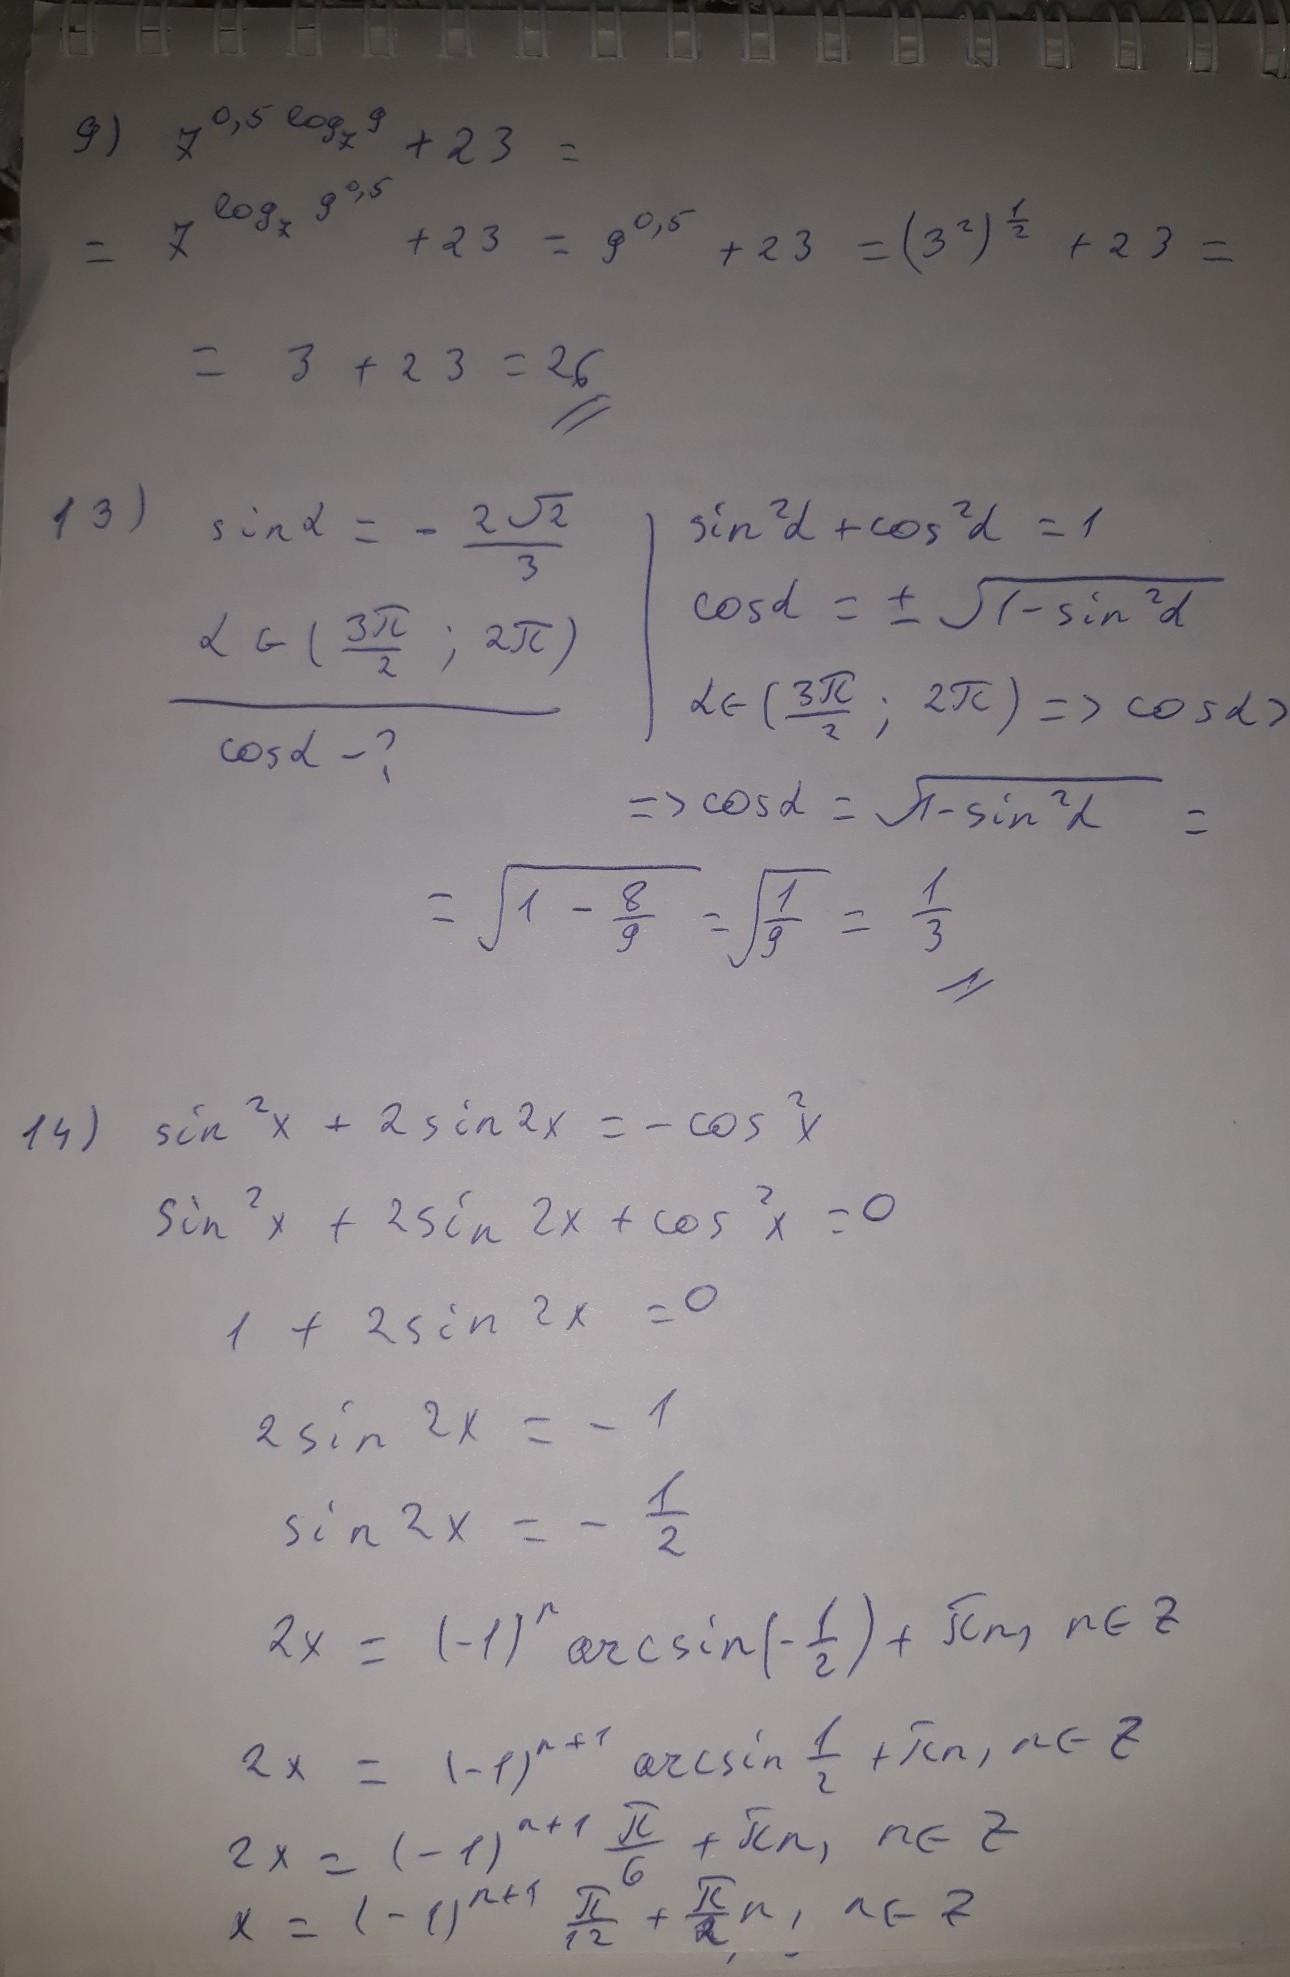 9) 7^{0,5 log_7 9} + 23 =
= 7^{log_7 9^{0,5}} + 23 = 9^{0,5} + 23 = (3²)^{1/2} + 23 =
= 3 + 23 = 26
13) sinα = - 2√2/3
α ∈ (3π/2 ; 2π)
cosα - ?
sin²α + cos²α = 1
cosα = ± √(1 - sin²α)
α ∈ (3π/2 ; 2π) => cosα >
=> cosα = √(1 - sin²α) =
= √(1 - 8/9) = √(1/9) = 1/3
14) sin²x + 2sin2x = - cos²x
sin²x + 2sin 2x + cos²x = 0
1 + 2sin 2x = 0
2sin 2x = - 1
sin 2x = - 1/2
2x = (-1)^n arcsin(- 1/2) + πn, n ∈ Z
2x = (-1)^{n+1} arcsin 1/2 + πn, n ∈ Z
2x = (-1)^{n+1} π/6 + πn, n ∈ Z
x = (-1)^{n+1} π/12 + π/2 n, n ∈ Z